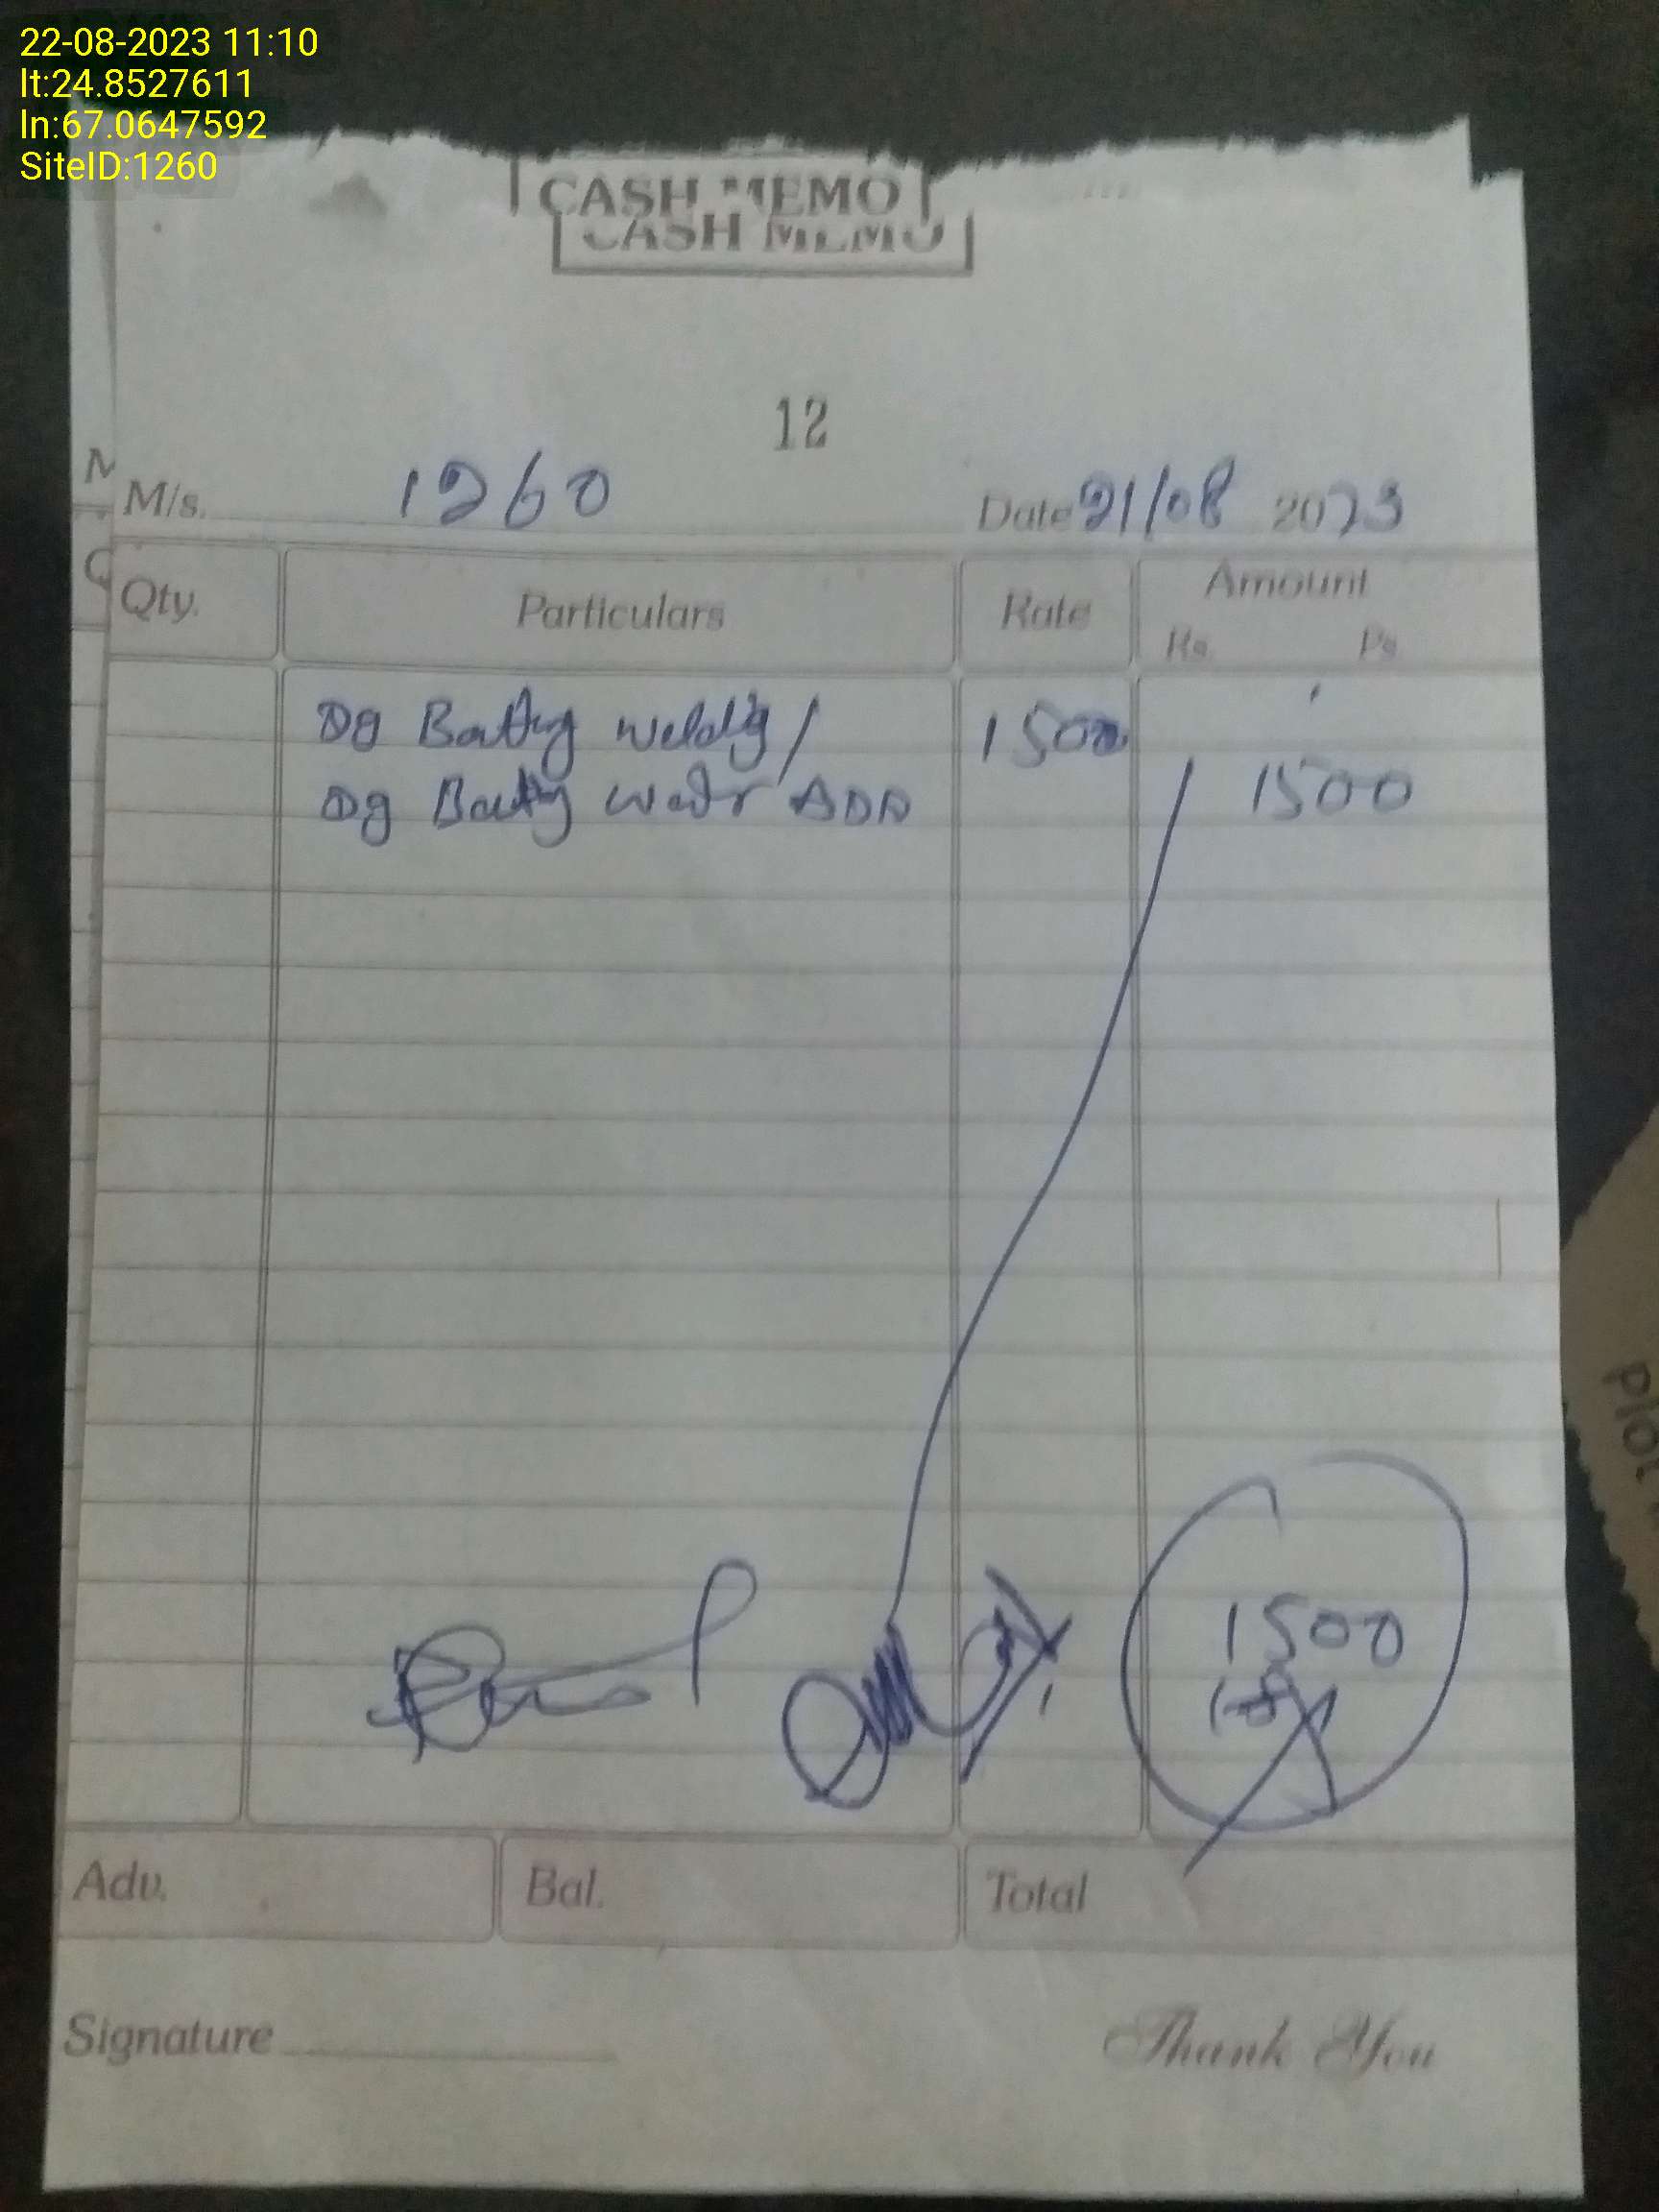 22-08-2023 11:10
lt:24.8527611
ln:67.0647592
SiteID:1260
CASH MEMO
CASH MEMO
12
M/s. 1260 Date 21/08 2023
Qty. Particulars Rate Amount
Rs. Ps
Dg Battery welding/ 1500
Dg Battery water ADD 1500
1500
Adv. Bal. Total
Signature Thank You
Plot